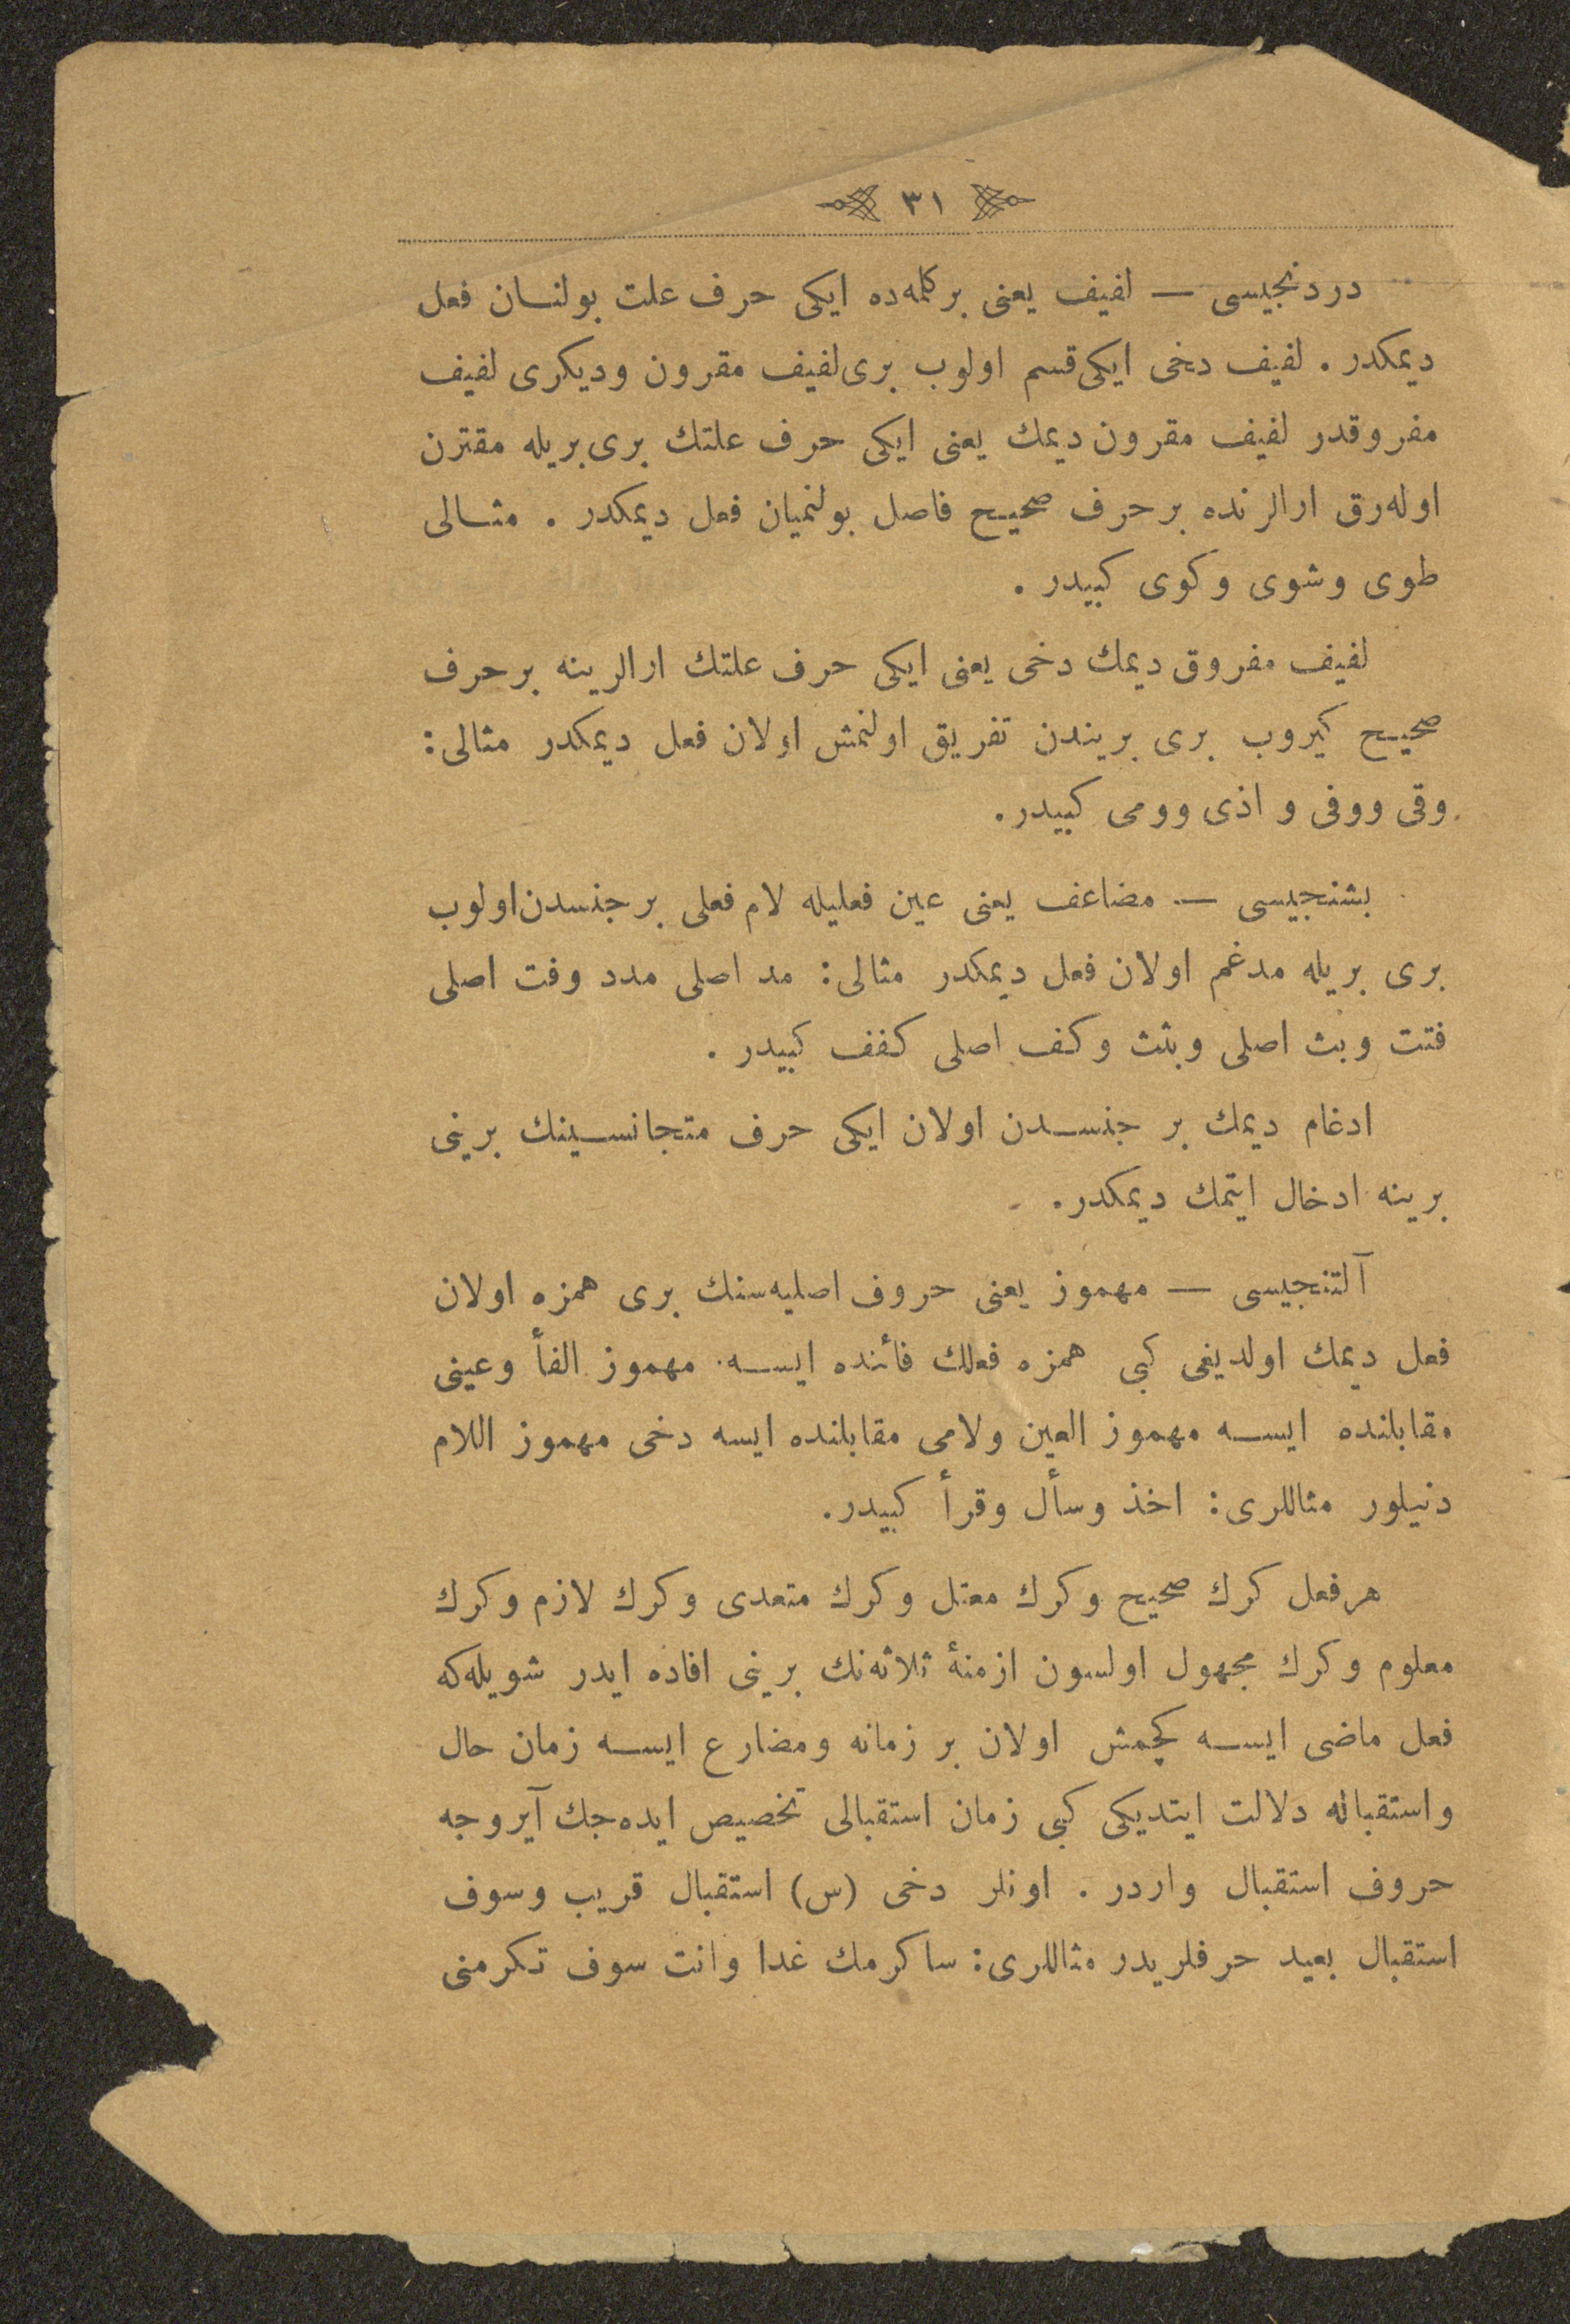 ٣١
دردنجیسی — لفیف یعنی بركلمه‌ده ایكی حرف علت بولنـان فعل
دیمكدر . لفیف دخی ایكی قسم اولوب بری لفیف مقرون ودیكری لفیف
مفروقدر لفیف مقرون دیمك یعنی ایكی حرف علتك بری بریله مقترن
اوله‌رق ارالرنده برحرف صحیـح فاصل بولنمیان فعل دیمكدر . مثـالی
طوی وشوی وكوی كبیدر .
لفیف مفروق دیمك دخی یعنی ایكی حرف علتك ارالرینه برحرف
صحیـح كیروب بری بریندن تفریق اولنمش اولان فعل دیمكدر مثالی :
وقی ووفی و اذی وومی كبیدر .
بشنجیسی — مضاعف یعنی عین فعلیله لام فعلی برجنسدن اولوب
بری بریله مدغم اولان فعل دیمكدر مثالی : مد اصلی مدد وفت اصلی
فتت وبث اصلی وبثث وكف اصلی كفف كبیدر .
ادغام دیمك بر جنسـدن اولان ایكی حرف متجانسـینك برینی
برینه ادخال ایتمك دیمكدر .
آلتنجیسی — مهموز یعنی حروف اصلیه‌سنك بری همزه اولان
فعل دیمك اولدیغی كبی همزه فعلك فائنده ایسـه . مهموز الفأ وعینی
مقابلنده ایسـه مهموز العین ولامی مقابلنده ایسه دخی مهموز اللام
دنیلور مثاللری : اخذ وسأل وقرأ كبیدر .
هرفعل كرك صحیح وكرك معتل وكرك متعدی وكرك لازم وكرك
معلوم وكرك مجهول اولسون ازمنهٔ ثلاثه‌نك برینی افاده ایدر شویله‌كه
فعل ماضی ایسـه كچمش اولان بر زمانه ومضارع ایسـه زمان حال
واستقباله دلالت ایتدیكی كبی زمان استقبالی تخصیص ایده‌جك آیروجه
حروف استقبال واردر . اونلر دخی (س) استقبال قریب وسوف
استقبال بعید حرفلریدر مثاللری : ساكرمك غدا وانت سوف تكرمنی